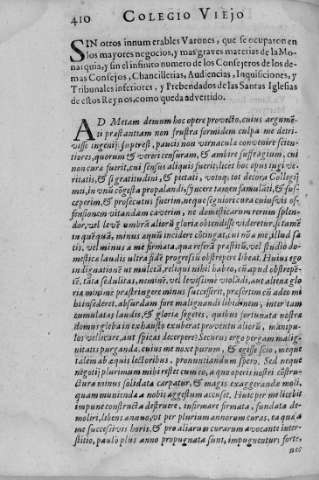 410 COLEGIO VIEJO
SIN otros innumerables Varones, que se ocuparon en
los mayores negocios, y mas graves materias de la Mo-
narquia, y sin el infinito numero de los Consejeros de los de-
mas Consejos, Chancillerias, Audiencias, Inquisiciones, y
Tribunales inferiores, y Prebendados de las Santas Iglesias
de estos Reynos, como queda advertido.
AD Metam demum hoc opere provecto, cuius argumē-
ti præstantiam non frustra formidem culpa me detri-
visse ingenij. si
quorum & vereri censuram, & ambire suffragium, cui
non cura fuerit, cui
ritatis, & si gratitudini, & pietati, votoq; tot decora Collegij
mei, in vnū cōgesta propalandi, & sus-
ceperim, & prosecutus fuerim, neque segniore cura cuiusvis of-
fensionem vitandam caverim, ne domesticarum rerum splen-
dor, vel levē umbrā alienę gloriæ obtendisse videretur: si tamē
in quæ quā, minus aquū incidere cōtingat, cui nō a me, illud sa-
tis, vel minus a me firmata, quæ referā præstitū, vel studio do-
mesticæ laudis ultra fidē progressū obstrepere libeat. Huius ego
indignationē ut mulceā, reliqui nihil habeo,
rā, vel levissimè violādi, aut alienæ glo
riæ minimè præstringere minus successerit, præsertim cū adeo mi
hi insideret, absurdam fore malignandi libidinem, inter tam
cumulatas laudis, & gloriæ segetes, quibus fortunata nostra
domus gleba inexhausto exuberat proventu alienū, manipu-
los vellicare, aut spicas decerpere. Securus ergo pergam malig-
nitatis purganda, cuius me nox est purum, & egisse scio, meque
talem ab æquis lectoribus, pronuntiandum spero. Sed neque
negotij plurimum mihi restet cum eo, a quo operis nostri cōstru-
ctura minus solidata carpatur, & magis exaggeranda moli,
quam munienda a nobis aggestum accuset. Huic per me licebit
impune constructa destruere, infirmare firmata, fundata de-
moliri, labens animo, vt per plurium annorum curas, ea quæ a
me succesivis horis, & præ aliarum curarum avocante inter-
stitio, paulo plus anno propugnata sunt, impugnentur: forte,
nec